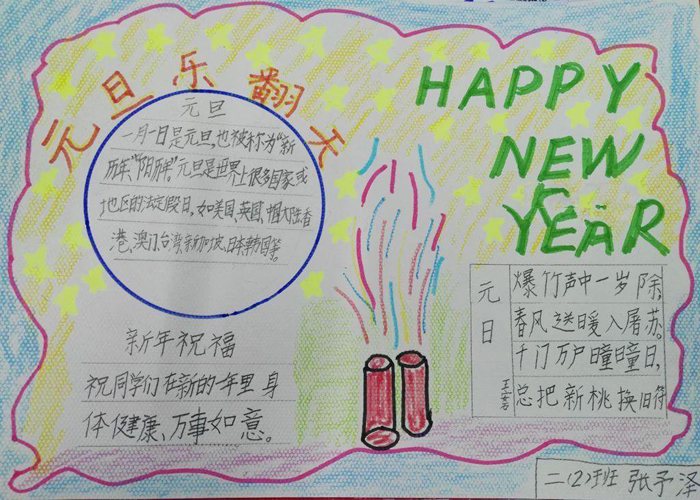 元旦乐翻天
HAPPY
NEW
YEAR
元旦
一月一日是元旦,也被称为“新
历年,“阳历年”。元旦是世界上很多国家或
地区的法定假日,如美国、英国、中国大陆香
港、澳门、台湾、新加坡、日本、韩国等。
新年祝福
祝同学们在新的一年里身
体健康、万事如意。
元日
王安石
爆竹声中一岁除,
春风送暖入屠苏。
千门万户曈曈日,
总把新桃换旧符
二(2)班 张予泽